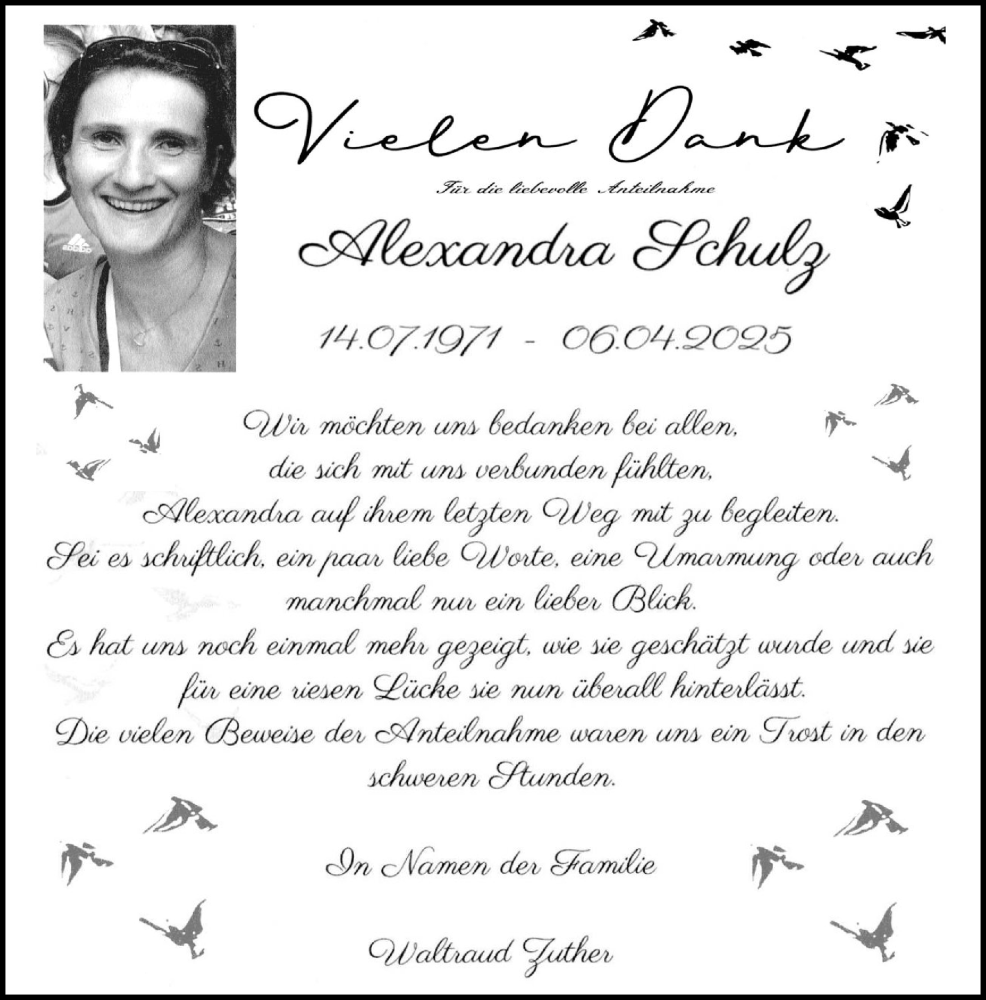 Vielen Dank
Für die liebevolle Anteilnahme
Alexandra Schulz
14.07.1971 - 06.04.2025
adidas
Wir möchten uns bedanken bei allen,
die sich mit uns verbunden fühlten,
Alexandra auf ihrem letzten Weg mit zu begleiten.
Sei es schriftlich, ein paar liebe Worte, eine Umarmung oder auch
manchmal nur ein lieber Blick.
Es hat uns noch einmal mehr gezeigt, wie sie geschätzt wurde und sie
für eine riesen Lücke sie nun überall hinterlässt.
Die vielen Beweise der Anteilnahme waren uns ein Trost in den
schweren Stunden.
In Namen der Familie
Waltraud Zuther